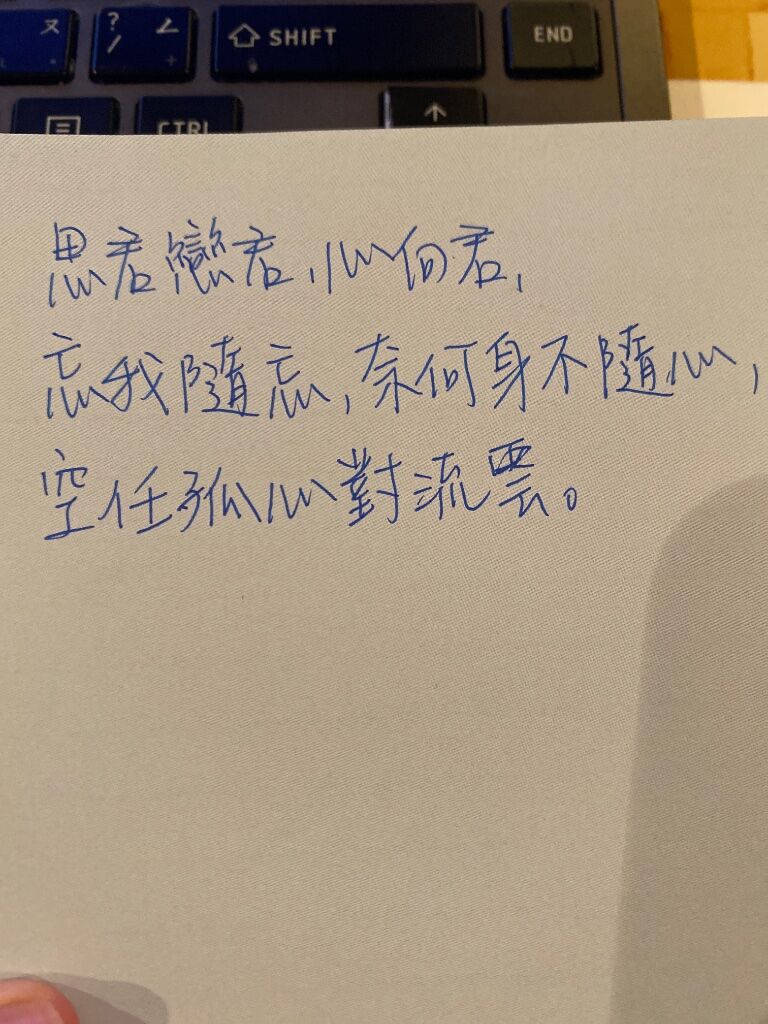 ㄡ ? / ㄥ SHIFT END
CTRL
思君戀君,心向君,
忘我隨忘,奈何身不隨心,
空任孤心對流雲。